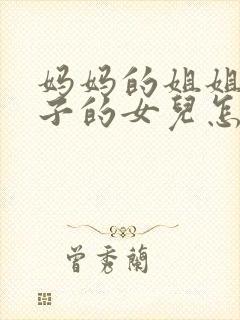 妈妈的姐姐
子的女兒怎
曾秀蘭